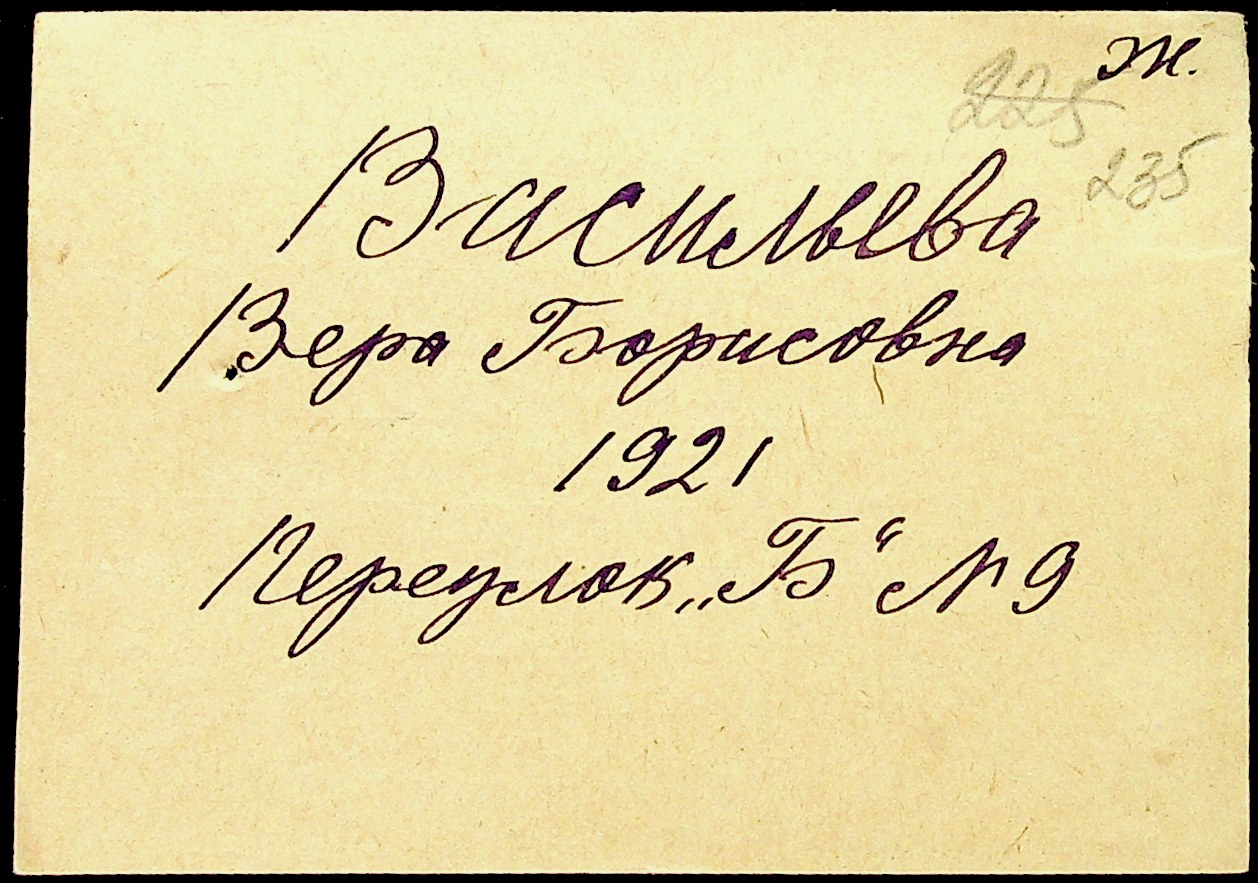 ж.
225
235
Васильева
Вера Борисовна
1921
Переулок „Б“ № 9